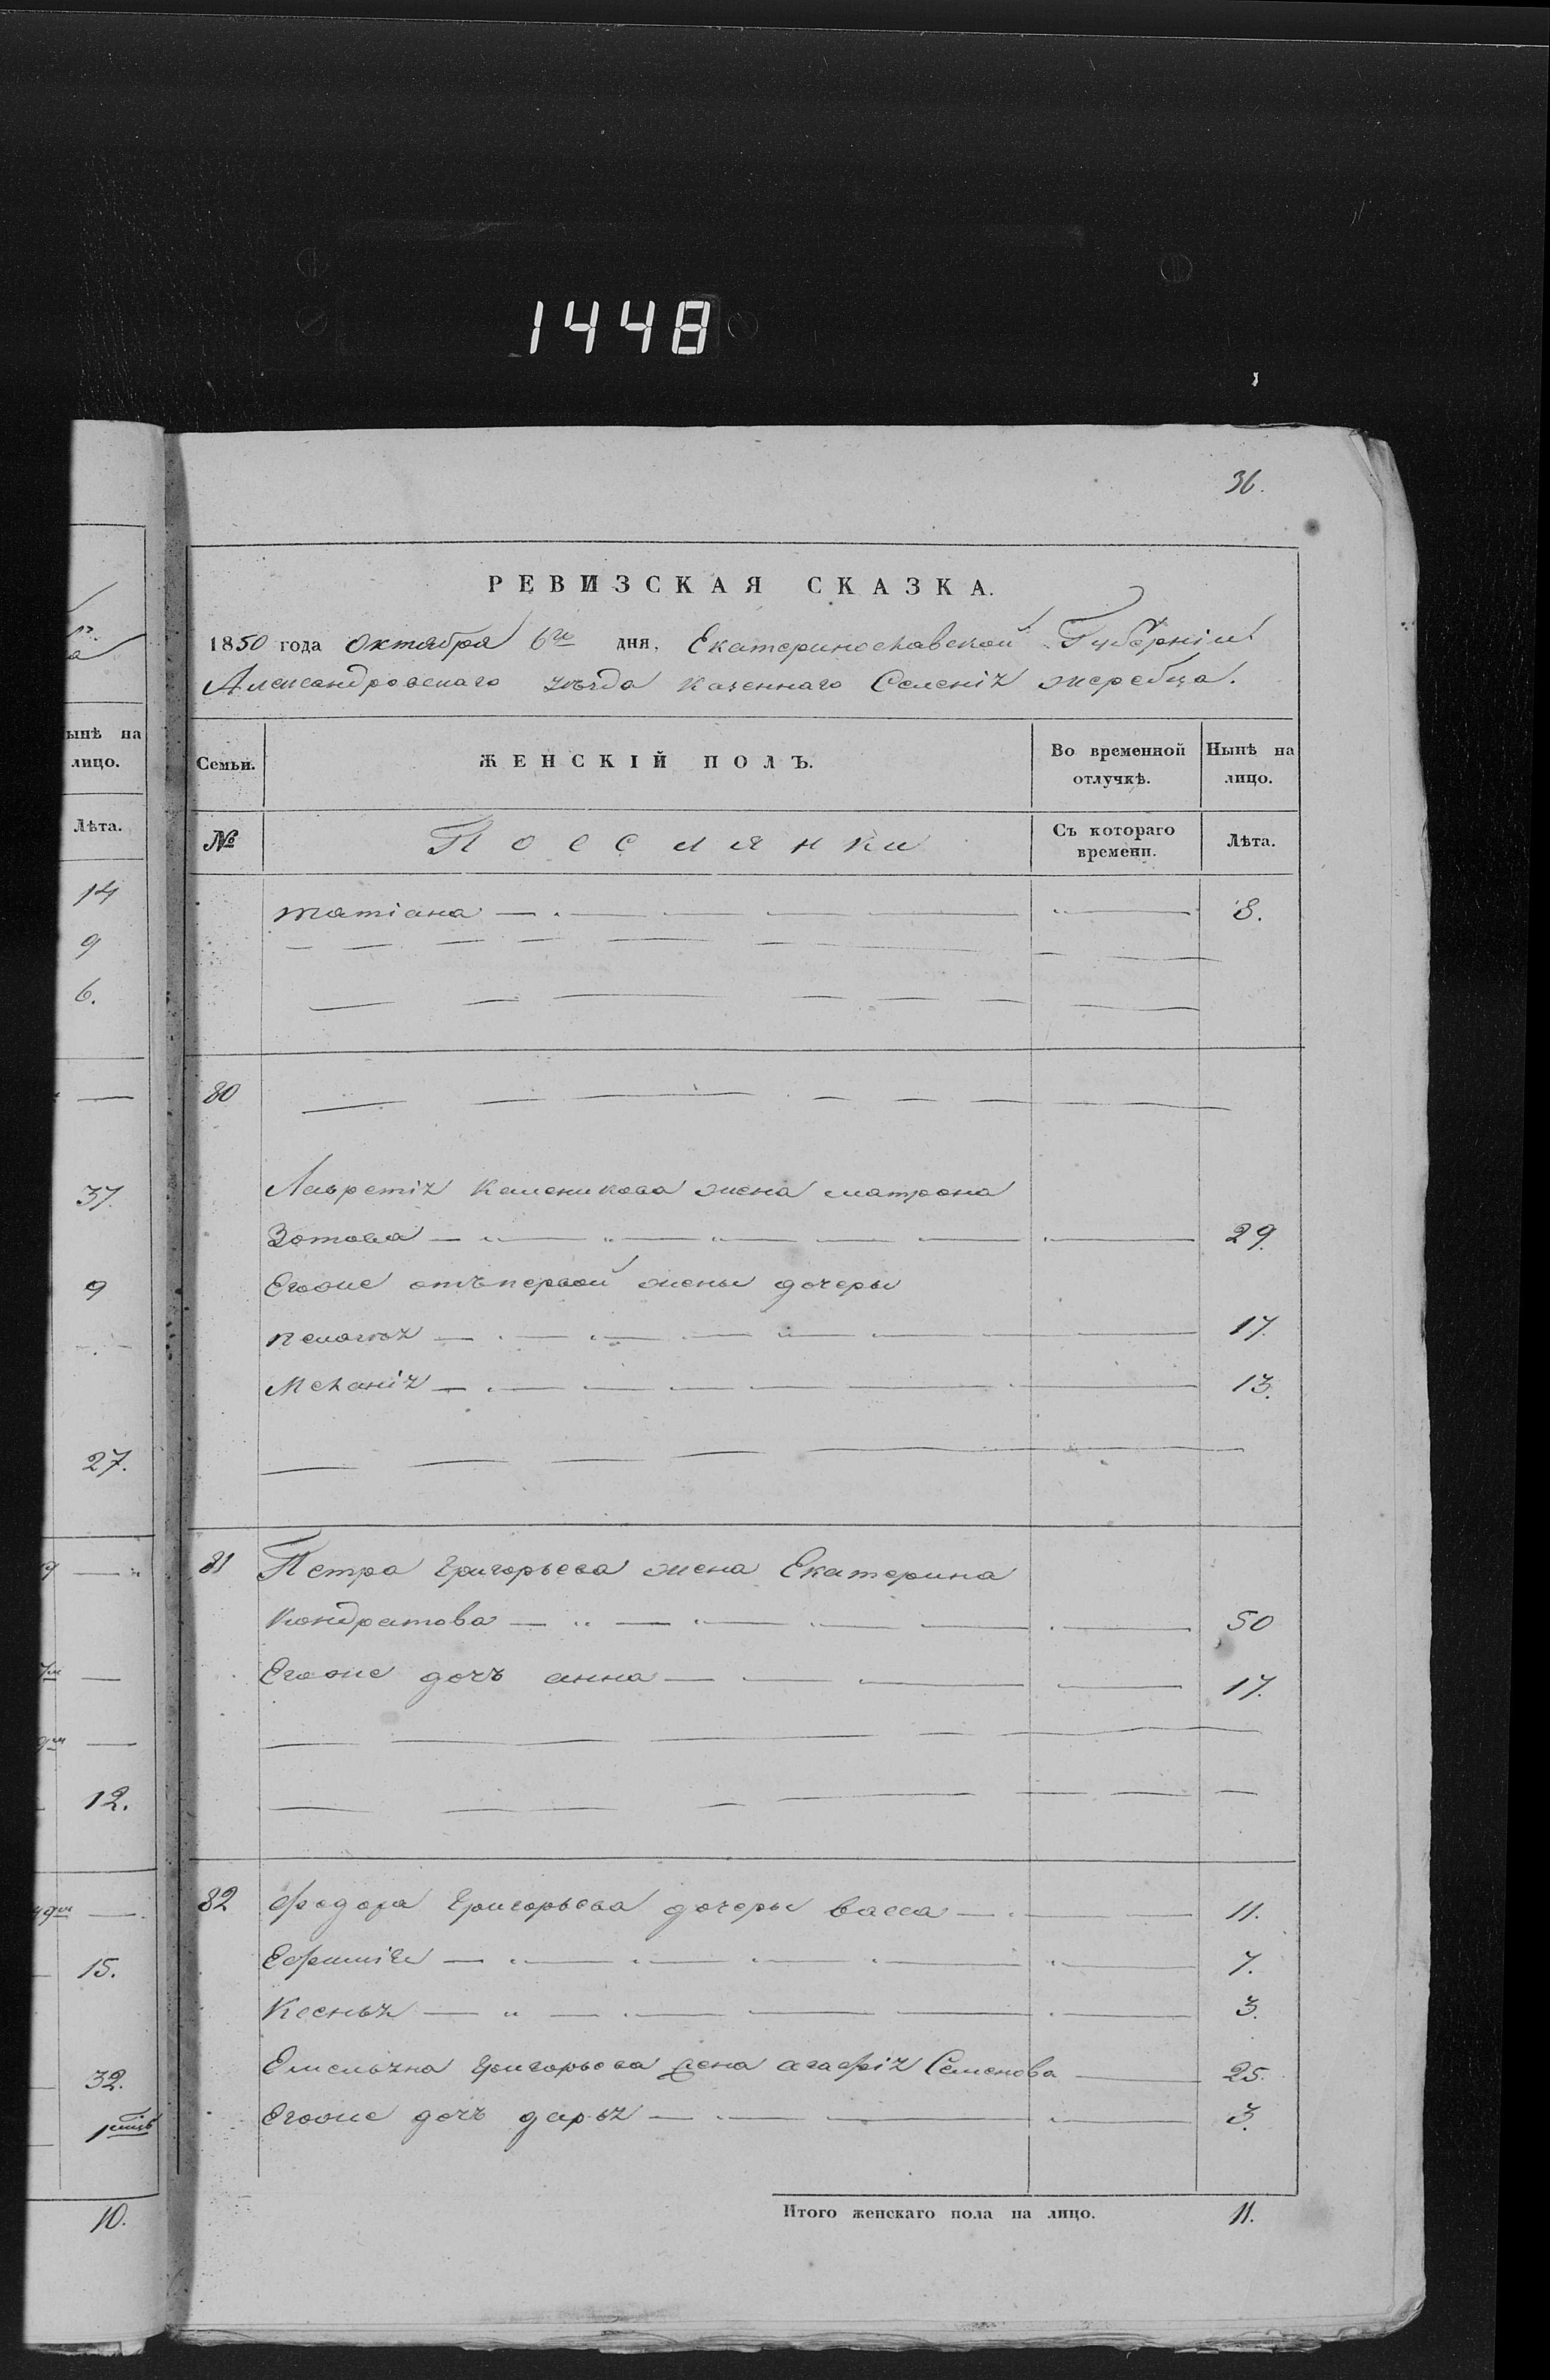 1448
36.
РЕВИЗСКАЯ СКАЗКА.
1850 года Октября 6го дня, Екатеринославской Губерніи
Александровскаго уѣзда казеннаго Селенія жеребца.
ынѣ на лицо.
Семьи. ЖЕНСКІЙ ПОЛЪ. Во временной отлучкѣ. Нынѣ на лицо.
Лѣта.
№ Поселянки Съ котораго времени. Лѣта.
14
9
6.
37.
9
27.
12.
15.
32.
10.
татіана 8.
80
Лаврентія Каленикова жена матрона
Зотова 29.
Егоже отъ первой жены дочеры
пелагѣя 17.
Меланія 13.
81 Петра Григорьева жена Екатерина
Кондратова 50
Егоже дочъ анна 17.
82 Федора Григорьева дочеры васса 11.
Ефимія 7.
Ксенья 3.
Емельяна Григорьева жена агафія Семенова 25.
Егоже дочъ дарья 3.
Итого женскаго пола на лицо. 11.